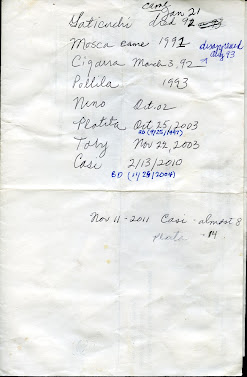 came Jan 21
Gaticuchi 92
Mosca came 1991 disappeared
Cigarra March 3, 92 Aug 93
Polilla 1993
Nino Oct. 02
Platita Oct 25, 2003
(9/25/1997)
Toby Nov 22, 2003
Casi 2/13/2010
BD (11/28/2004)
Nov 11 - 2011 Casi - almost 8
Plata - 14